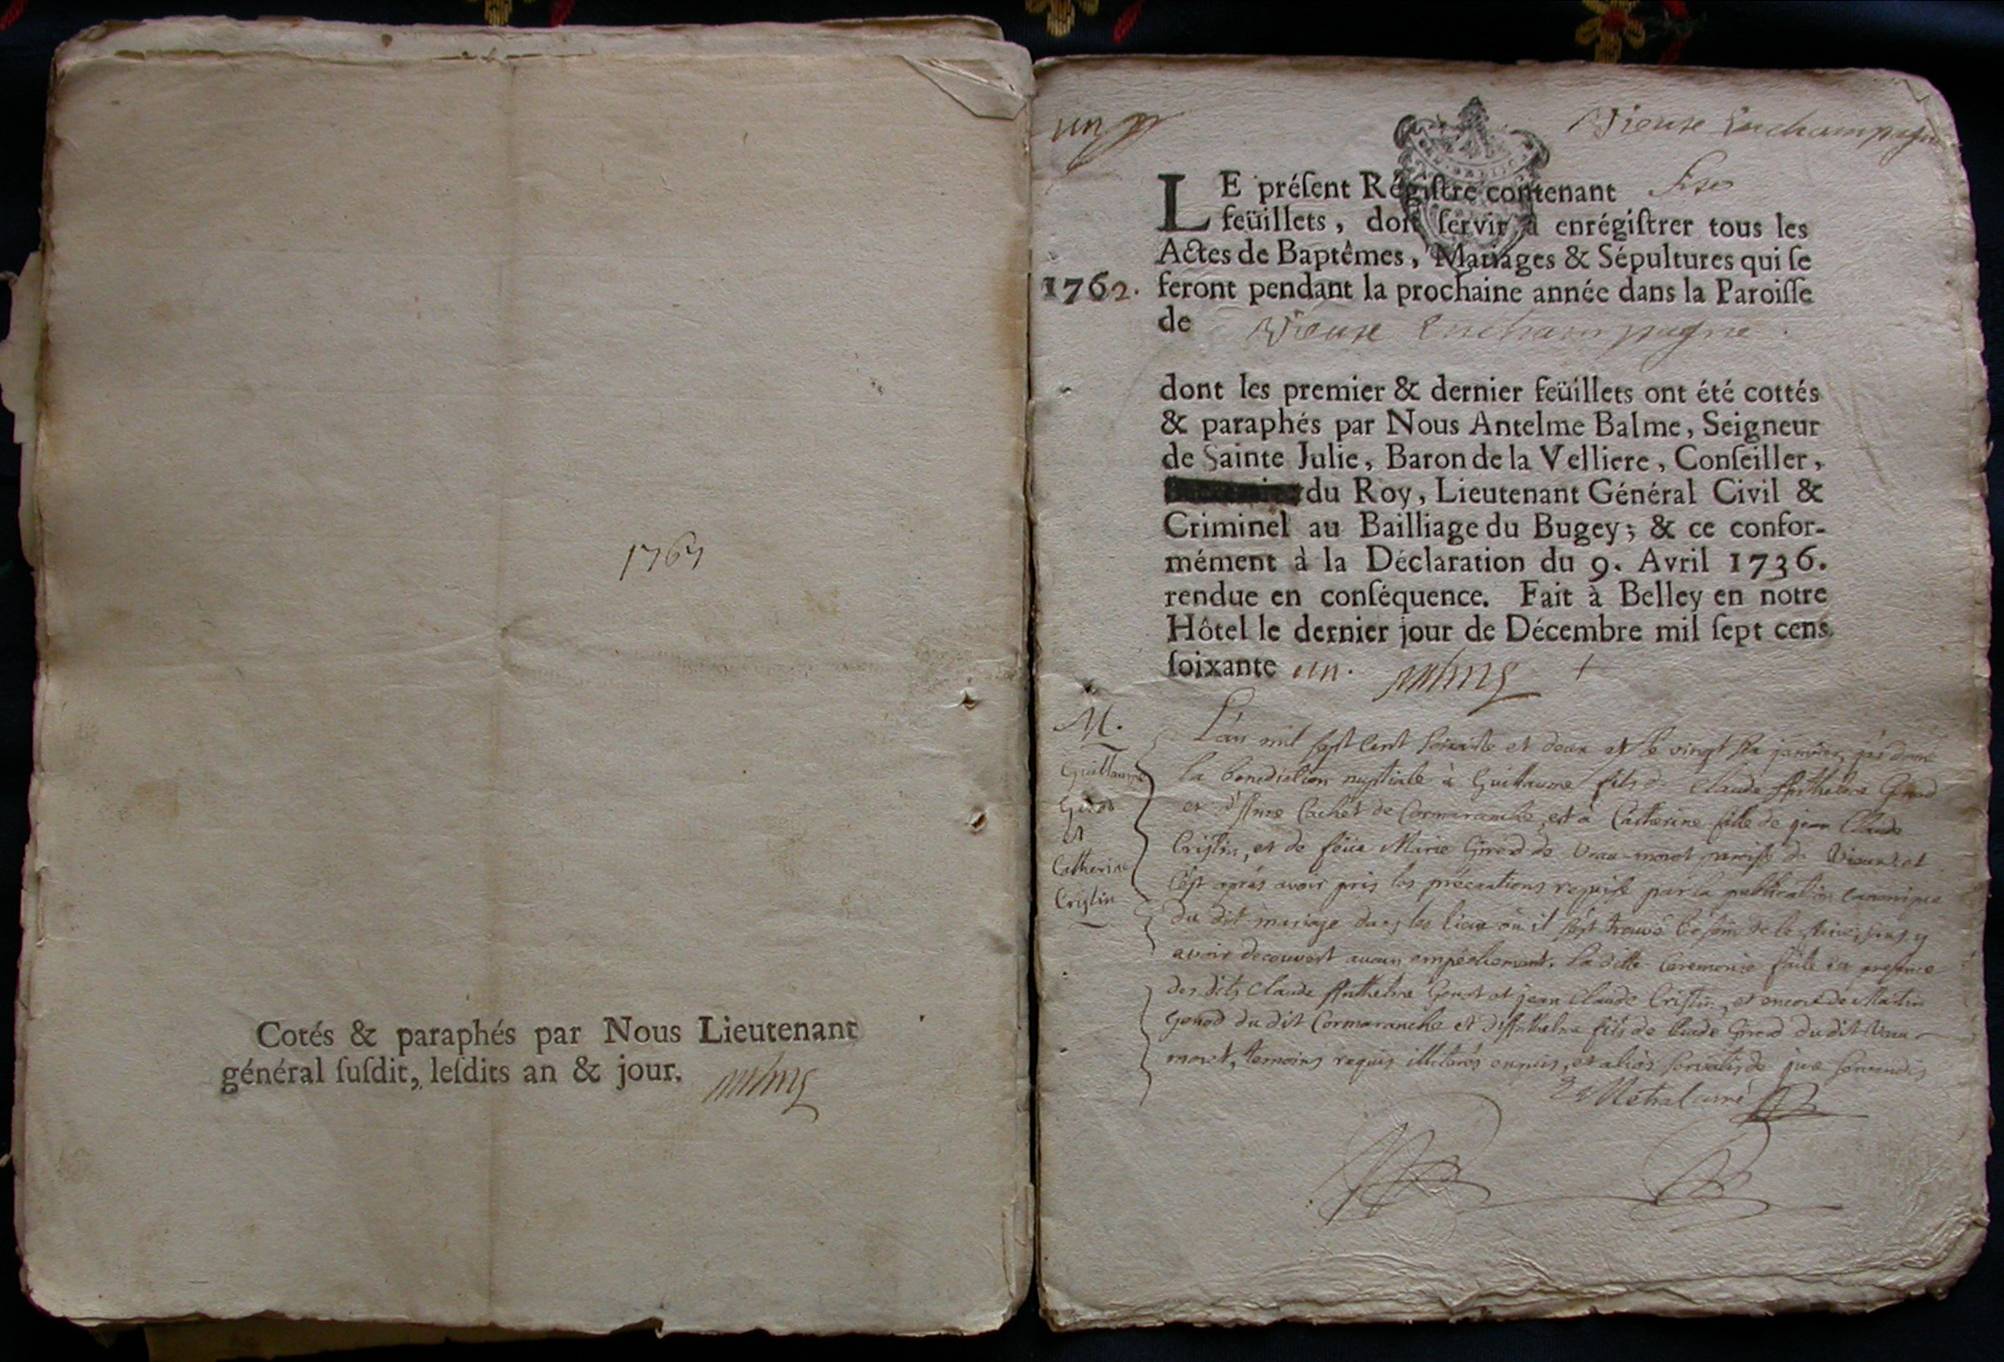 1761
Cotés & paraphés par Nous Lieutenant
général suſdit, leſdits an & jour.
un
Vieuse Enchampagne
LE préſent Régiſtre contenant six
feüillets, doit ſervir à enrégiſtrer tous les
Actes de Baptêmes, Mariages & Sépultures qui ſe
1762. feront pendant la prochaine année dans la Paroiſſe
de Vieuse Enchampagne.
dont les premier & dernier feüillets ont été cottés
& paraphés par Nous Antelme Balme, Seigneur
de Sainte Julie, Baron de la Velliere, Conſeiller,
du Roy, Lieutenant Général Civil &
Criminel au Bailliage du Bugey; & ce confor-
mément à la Déclaration du 9. Avril 1736.
rendue en conſéquence. Fait à Belley en notre
Hôtel le dernier jour de Décembre mil ſept cens
ſoixante un.
M.
Guillaume
Genod
et
Catherine
Cristin
L'an mil sept cent soixante et deux et le vingt six janvier j'ai donné
la benediction nuptiale à Guillaume fils de Claude Anthelme Genod
et d'Anne Cachet de Cormaranche, et à Catherine fille de jean Claude
Cristin, et de feüe Marie Girod de Vaux-moret paroisse de Vieuse et
c'est après avoir pris les précautions requise par la publication canonique
du dit mariage dans les lieux où il s'est trouvé besoin de le faire, sans y
avoir decouvert aucun empêchement. la ditte ceremonie faite en presence
des dits Claude Anthelme Genod et jean Claude Cristin, et encore de Martin
Genod du dit Cormaranche et d'Anthelme fils de Girod du dit Vaux-
moret, temoins requis illiterés enquis, et aliàs servatis de jure servandis
Métral curé